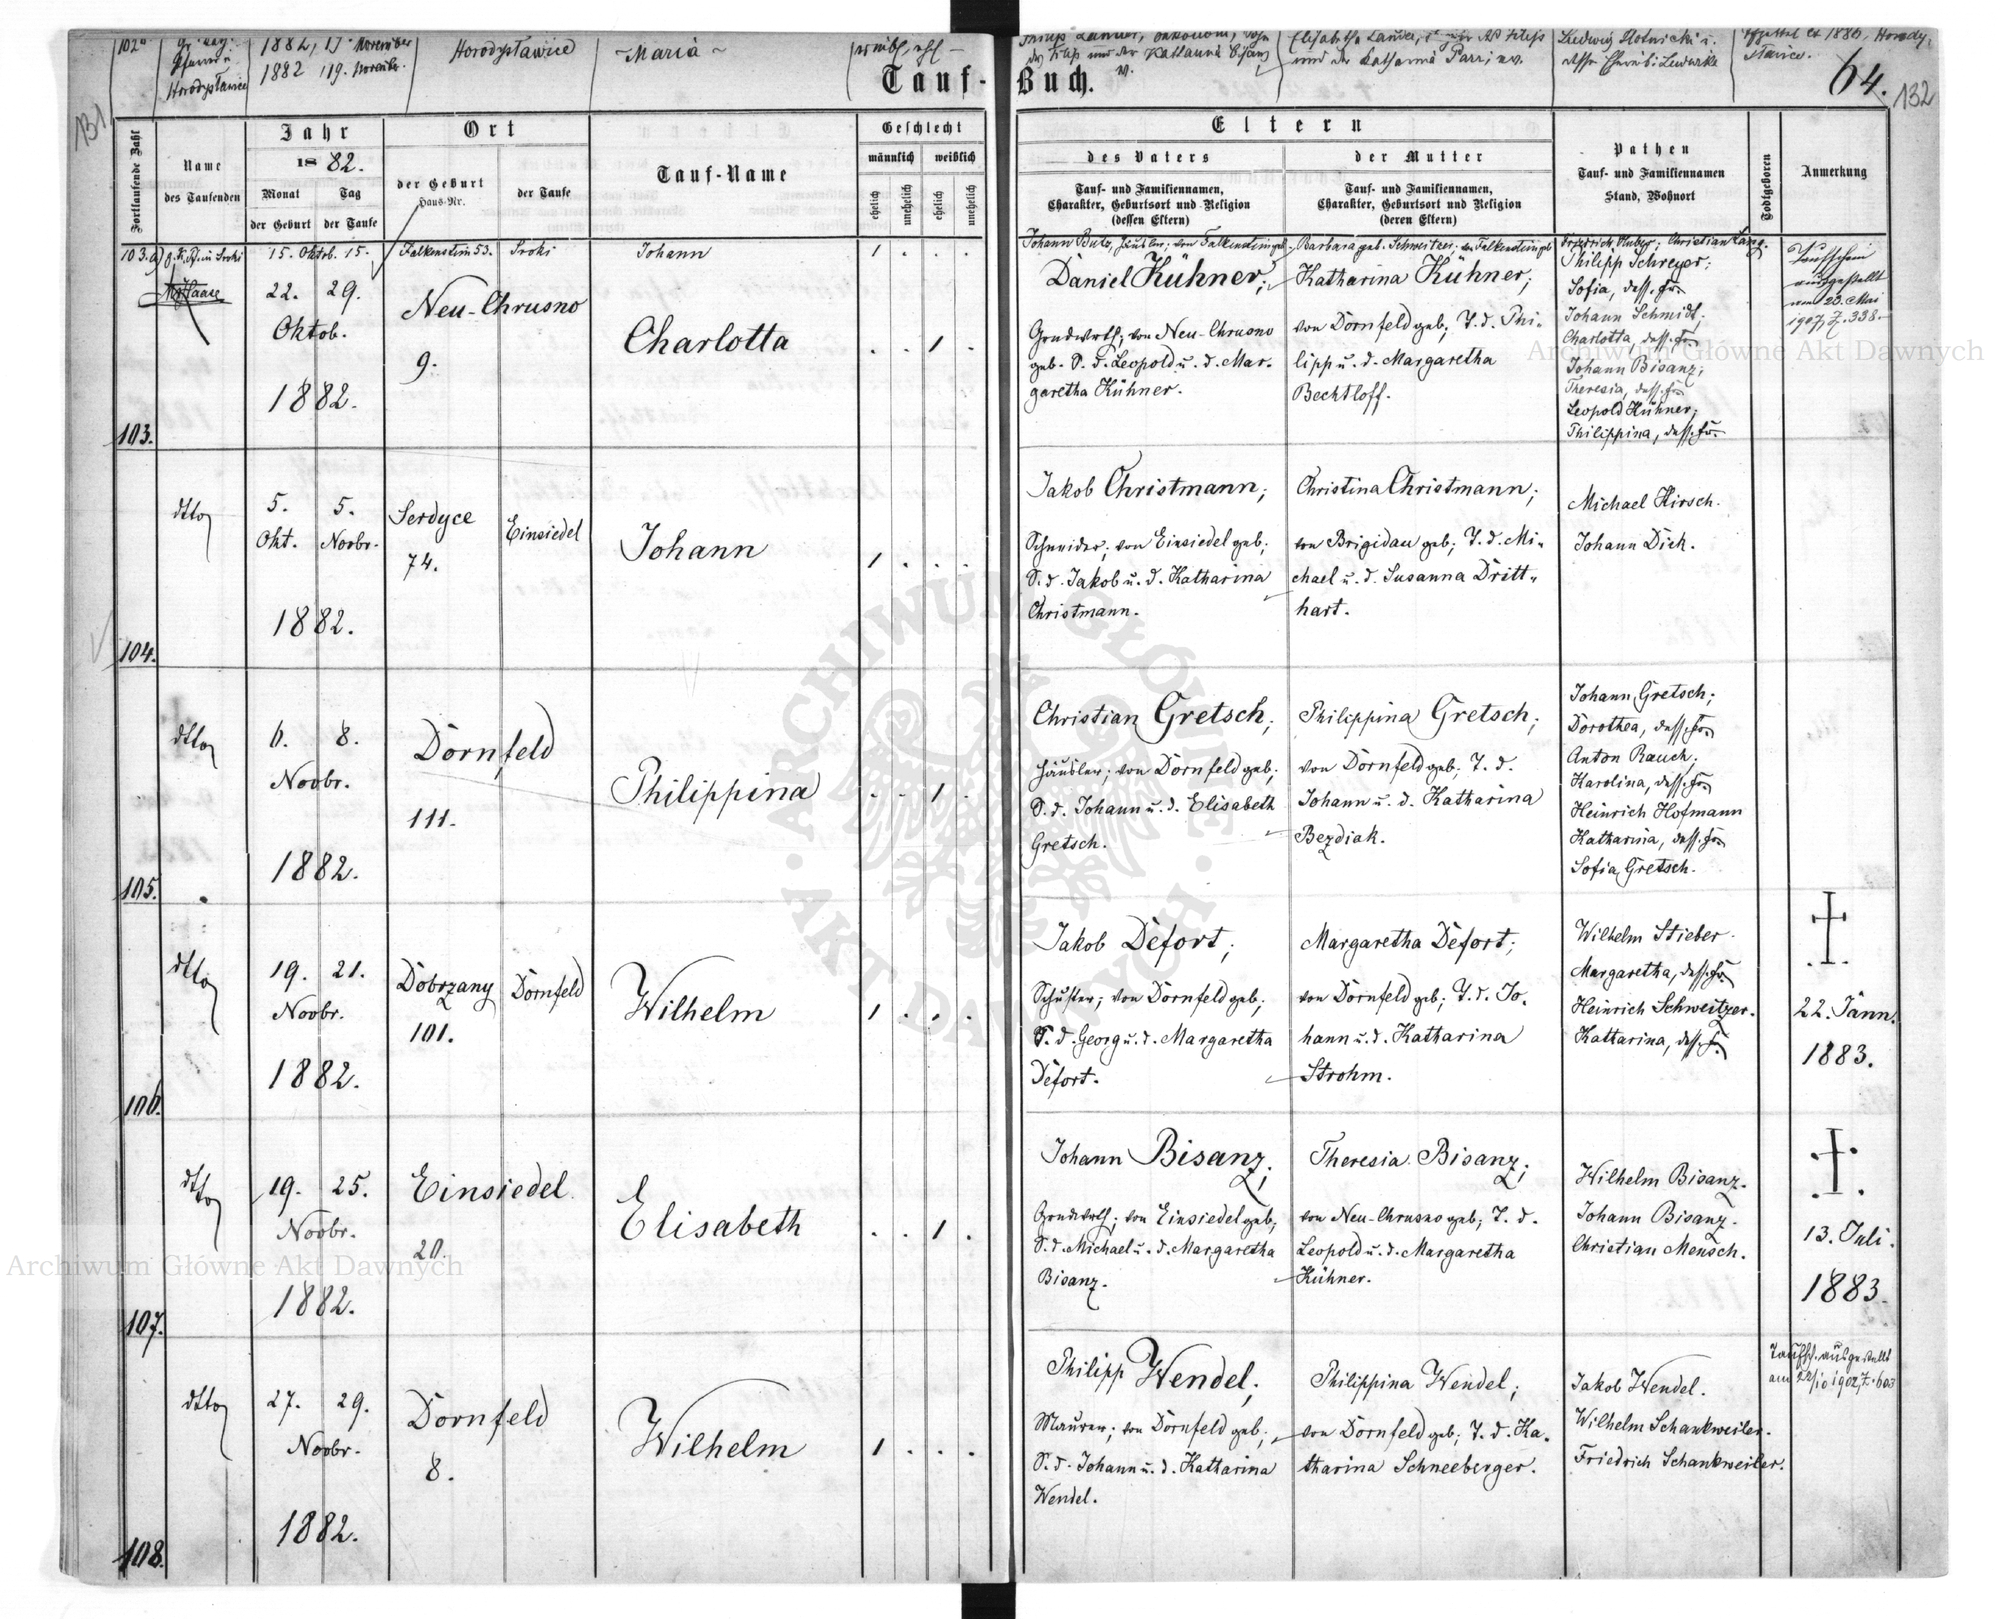 102a
1882, 17. November
Horodysławice
~ Maria ~
1882 19. Novemb.
Horodysławice
und der Katharina
Ludwig
1880, Horody-
sławice.
Tauf-Buch.
64.
131
132
Fortlaufende Zahl
Name
des Taufenden
Jahr
1882.
Monat
Tag
der Geburt
der Taufe
Ort
der Geburt
Haus-Nr.
der Taufe
Tauf-Name
Geschlecht
männlich
weiblich
ehelich
unehelich
ehelich
unehelich
Eltern
des Vaters
Tauf- und Familiennamen,
Charakter, Geburtsort und Religion
(dessen Eltern)
der Mutter
Tauf- und Familiennamen,
Charakter, Geburtsort und Religion
(deren Eltern)
Pathen
Tauf- und Familiennamen
Stand, Wohnort
Todtgeboren
Anmerkung
103.a)
15. Oktob. 15.
Falkenstein 53.
Sroki
Johann
1 . . .
Barbara geb. Schweitzer; von Falkenstein geb.
Friedrich Huber; Christian Lang.
103.
22. 29.
Oktob.
1882.
Neu-Chrusno
9.
Charlotta
. . 1 .
Daniel Kühner;
Grndwrth; von Neu-Chrusno
geb. S. d. Leopold u. d. Mar-
garetha Kühner.
Katharina Kühner;
von Dornfeld geb; T. d. Phi-
lipp u. d. Margaretha
Bechtloff.
Philipp Schreyer;
Sofia, dess. Fr.
Johann Schmidt;
Charlotta, dess. Fr.
Johann Bisanz;
Theresia, dess. Fr.
Leopold Kühner;
Philippina, dess. Fr.
Taufschein
ausgestellt
am 23. Mai
1907, Z. 338.
104.
dtto
5. 5.
Okt. Novbr.
1882.
Serdyce
74.
Einsiedel
Johann
1 . . .
Jakob Christmann;
Schneider; von Einsiedel geb;
S. d. Jakob u. d. Katharina
Christmann.
Christina Christmann;
von Brigidau geb; T. d. Mi-
chael u. d. Susanna Dritt-
hart.
Michael Hirsch.
Johann Dick.
105.
dtto
6. 8.
Novbr.
1882.
Dornfeld
111.
Philippina
. . 1 .
Christian Gretsch;
Häusler; von Dornfeld geb;
S. d. Johann u. d. Elisabeth
Gretsch.
Philippina Gretsch;
von Dornfeld geb; T. d.
Johann u. d. Katharina
Bezdiak.
Johann Gretsch;
Dorothea, dess. Fr.
Anton Rauch;
Karolina, dess. Fr.
Heinrich Hofmann
Katharina, dess. Fr.
Sofia Gretsch.
106.
dtto
19. 21.
Novbr.
1882.
Dobrzany
101.
Dornfeld
Wilhelm
1 . . .
Jakob Defort;
Schuster; von Dornfeld geb;
S. d. Georg u. d. Margaretha
Defort.
Margaretha Defort;
von Dornfeld geb; T. d. Jo-
hann u. d. Katharina
Strohm.
Wilhelm Stieber.
Margaretha, dess. Fr.
Heinrich Schweitzer.
Katharina, dess. Fr.
22. Jänn.
1883.
107.
dtto
19. 25.
Novbr.
1882.
Einsiedel
20.
Elisabeth
. . 1 .
Johann Bisanz;
Grndwrth; von Einsiedel geb;
S. d. Michael u. d. Margaretha
Bisanz.
Theresia Bisanz;
von Neu-Chrusno geb; T. d.
Leopold u. d. Margaretha
Kühner.
Wilhelm Bisanz.
Johann Bisanz.
Christian Mensch.
13. Juli.
1883.
108.
dtto
27. 29.
Novbr.
1882.
Dornfeld
8.
Wilhelm
1 . . .
Philipp Wendel;
Maurer; von Dornfeld geb;
S. d. Johann u. d. Katharina
Wendel.
Philippina Wendel;
von Dornfeld geb; T. d. Ka-
tharina Schneeberger.
Jakob Wendel.
Wilhelm Schankweiler.
Friedrich Schankweiler.
Taufsch. ausgestellt
am 22/10 1902, Z. 603
Archiwum Główne Akt Dawnych
Archiwum Główne Akt Dawnych
ARCHIWUM GŁÓWNE · AKT DAWNYCH ·